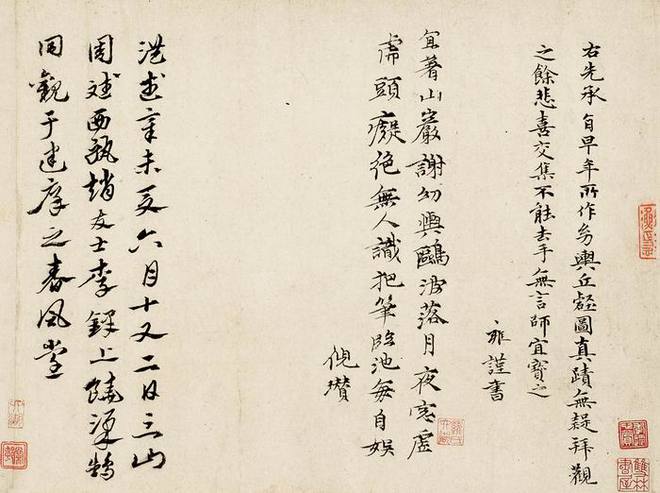 右先承旨早年所作幼輿丘壑圖真蹟無疑拜觀
之餘悲喜交集不能去手無言師宜寶之
雍謹書
宜著山巖謝幼輿鷗波落月夜窓虛
虎頭癡絕無人識把筆臨池每自娛
倪瓚
洪武辛未夏六月十又二日三山
周斌西甌趙友士李鐸上饒渠鵠
同觀于建庠之春風堂